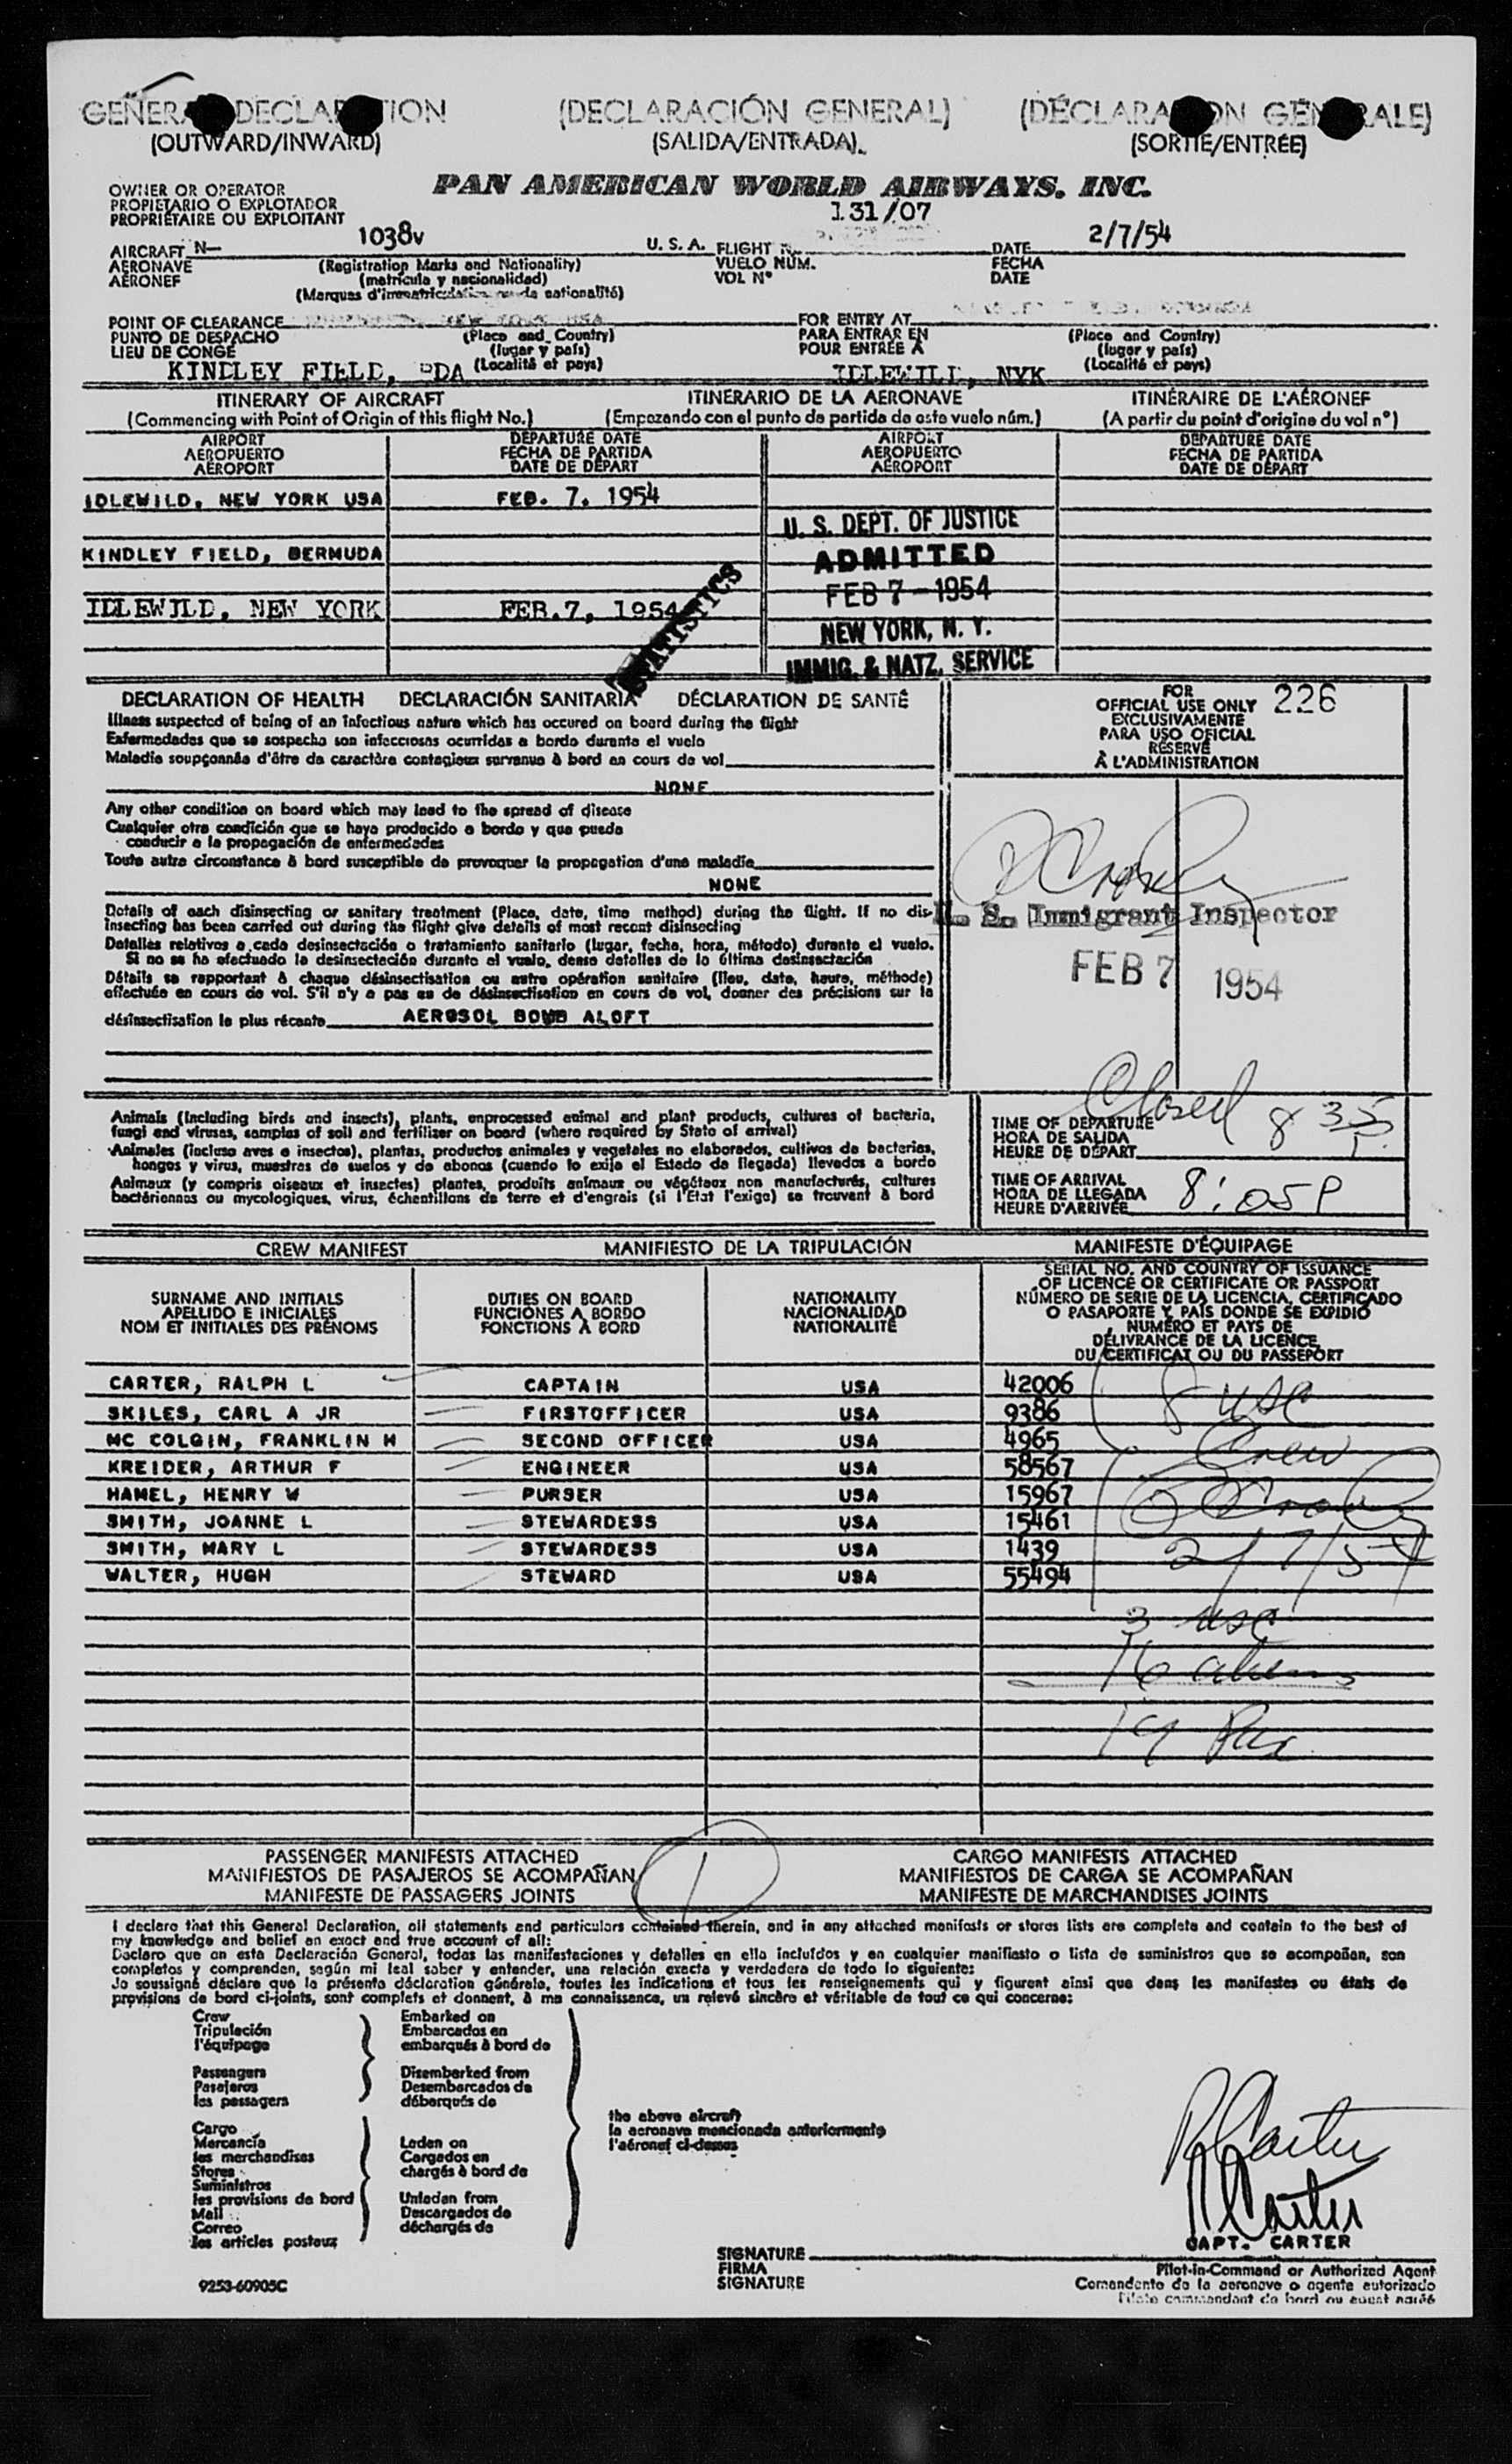 GENERAL DECLARATION (DECLARACIÓN GENERAL) (DÉCLARATION GÉNÉRALE)
(OUTWARD/INWARD) (SALIDA/ENTRADA). (SORTIE/ENTRÉE)
OWNER OR OPERATOR PAN AMERICAN WORLD AIRWAYS. INC.
PROPIETARIO O EXPLOTADOR
PROPRIÉTAIRE OU EXPLOITANT
131/07
AIRCRAFT N- 1038v U. S. A. FLIGHT DATE 2/7/54
AERONAVE (Registration Marks and Nationality) VUELO NÚM. FECHA
AÉRONEF (matrícula y nacionalidad) VOL N° DATE
(Marques d'immatriculation nationalité)
POINT OF CLEARANCE FOR ENTRY AT
PUNTO DE DESPACHO (Place and Country) PARA ENTRAR EN (Place and Country)
LIEU DE CONGÉ (lugar y país) POUR ENTRÉE À (lugar y país)
KINDLEY FIELD, BDA (Localité et pays) IDLEWILD, NYK (Localité et pays)
ITINERARY OF AIRCRAFT ITINERARIO DE LA AERONAVE ITINÉRAIRE DE L'AÉRONEF
(Commencing with Point of Origin of this flight No.) (Empezando con el punto de partida de este vuelo núm.) (A partir du point d'origine du vol n°)
AIRPORT DEPARTURE DATE AIRPORT DEPARTURE DATE
AEROPUERTO FECHA DE PARTIDA AEROPUERTO FECHA DE PARTIDA
AÉROPORT DATE DE DÉPART AÉROPORT DATE DE DÉPART
IDLEWILD, NEW YORK USA FEB. 7. 1954
U. S. DEPT. OF JUSTICE
KINDLEY FIELD, BERMUDA ADMITTED
FEB 7 - 1954
IDLEWILD, NEW YORK FEB.7, 1954 STATISTICS
NEW YORK, N. Y.
IMMIG. & NATZ. SERVICE
DECLARATION OF HEALTH DECLARACIÓN SANITARIA DÉCLARATION DE SANTÉ
Illness suspected of being of an infectious nature which has occured on board during the flight
Enfermedades que se sospecha son infecciosas ocurridas a bordo durante el vuelo
Maladie soupçonnée d'être de caractère contagieux survenue à bord en cours de vol
NONE
Any other condition on board which may lead to the spread of disease
Cualquier otra condición que se haya producido a bordo y que pueda
conducir a la propagación de enfermedades
Toute autre circonstance à bord susceptible de provoquer la propagation d'une maladie
NONE
Details of each disinsecting or sanitary treatment (Place, date, time method) during the flight. If no dis-
insecting has been carried out during the flight give details of most recent disinsecting
Detalles relativos a cada desinsectación o tratamiento sanitario (lugar, fecha, hora, método) durante el vuelo.
Si no se ha efectuado la desinsectación durante el vuelo, dense detalles de la última desinsectación
Détails se rapportant à chaque désinsectisation ou autre opération sanitaire (lieu, date, heure, méthode)
effectuée en cours de vol. S'il n'y a pas eu de désinsectisation en cours de vol, donner des précisions sur la
désinsectisation la plus récente AEROSOL BOMB ALOFT
FOR
OFFICIAL USE ONLY 226
EXCLUSIVAMENTE
PARA USO OFICIAL
RÉSERVÉ
À L'ADMINISTRATION
U. S. Immigrant Inspector
FEB 7 1954
Animals (including birds and insects), plants, unprocessed animal and plant products, cultures of bacteria,
fungi and viruses, samples of soil and fertilizer on board (where required by State of arrival)
Animales (incluso aves e insectos), plantas, productos animales y vegetales no elaborados, cultivos de bacterias,
hongos y virus, muestras de suelos y de abonos (cuando lo exija el Estado de llegada) llevados a bordo
Animaux (y compris oiseaux et insectes) plantes, produits animaux ou végétaux non manufacturés, cultures
bactériennes ou mycologiques, virus, échantillons de terre et d'engrais (si l'Etat l'exige) se trouvent à bord
Closed 8 35 P.
TIME OF DEPARTURE
HORA DE SALIDA
HEURE DE DÉPART
TIME OF ARRIVAL
HORA DE LLEGADA
HEURE D'ARRIVÉE 8:05 P
CREW MANIFEST MANIFIESTO DE LA TRIPULACIÓN MANIFESTE D'ÉQUIPAGE
SURNAME AND INITIALS
APELLIDO E INICIALES
NOM ET INITIALES DES PRÉNOMS
DUTIES ON BOARD
FUNCIONES A BORDO
FONCTIONS À BORD
NATIONALITY
NACIONALIDAD
NATIONALITÉ
SERIAL NO. AND COUNTRY OF ISSUANCE
OF LICENCE OR CERTIFICATE OR PASSPORT
NÚMERO DE SERIE DE LA LICENCIA, CERTIFICADO
O PASAPORTE Y PAÍS DONDE SE EXPIDIÓ
NUMÉRO ET PAYS DE
DÉLIVRANCE DE LA LICENCE
DU CERTIFICAT OU DU PASSEPORT
CARTER, RALPH L CAPTAIN USA 42006
SKILES, CARL A JR FIRSTOFFICER USA 9386
MC COLGIN, FRANKLIN H SECOND OFFICER USA 4965
KREIDER, ARTHUR F ENGINEER USA 58567
HAMEL, HENRY W PURSER USA 15967
SMITH, JOANNE L STEWARDESS USA 15461
SMITH, MARY L STEWARDESS USA 1439
WALTER, HUGH STEWARD USA 55494
8 USC
Crew
2/7/54
3 usc
16 aliens
19 Pax
PASSENGER MANIFESTS ATTACHED CARGO MANIFESTS ATTACHED
MANIFIESTOS DE PASAJEROS SE ACOMPAÑAN 1 MANIFIESTOS DE CARGA SE ACOMPAÑAN
MANIFESTE DE PASSAGERS JOINTS MANIFESTE DE MARCHANDISES JOINTS
I declare that this General Declaration, all statements and particulars contained therein, and in any attached manifests or stores lists are complete and contain to the best of
my knowledge and belief an exact and true account of all:
Declaro que en esta Declaración General, todas las manifestaciones y detalles en ella incluídos y en cualquier manifiesto o lista de suministros que se acompañan, son
completos y comprenden, según mi leal saber y entender, una relación exacta y verdadera de todo lo siguiente:
Je soussigné déclare que la présente déclaration générale, toutes les indications et tous les renseignements qui y figurent ainsi que dans les manifestes ou états de
provisions de bord ci-joints, sont complets et donnent, à ma connaissance, un relevé sincère et véritable de tout ce qui concerne:
Crew
Tripulación
l'équipage
Passengers
Pasajeros
les passagers
Cargo
Mercancía
les marchandises
Stores
Suministros
les provisions de bord
Mail
Correo
les articles postaux
Embarked on
Embarcados en
embarqués à bord de
Disembarked from
Desembarcados de
débarqués de
Laden on
Cargados en
chargés à bord de
Unladen from
Descargados de
déchargés de
the above aircraft
la aeronave mencionada anteriormente
l'aéronef ci-dessus
R L Carter
R L Carter
CAPT. CARTER
SIGNATURE
FIRMA
SIGNATURE
Pilot-in-Command or Authorized Agent
Comandante de la aeronave o agente autorizado
Pilote commandant de bord ou agent agréé
9253-60905C